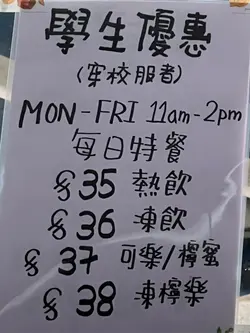 學生優惠
(穿校服者)
MON-FRI 11am-2pm
每日特餐
$35 熱飲
$36 凍飲
$37 可樂/檸蜜
$38 凍檸樂